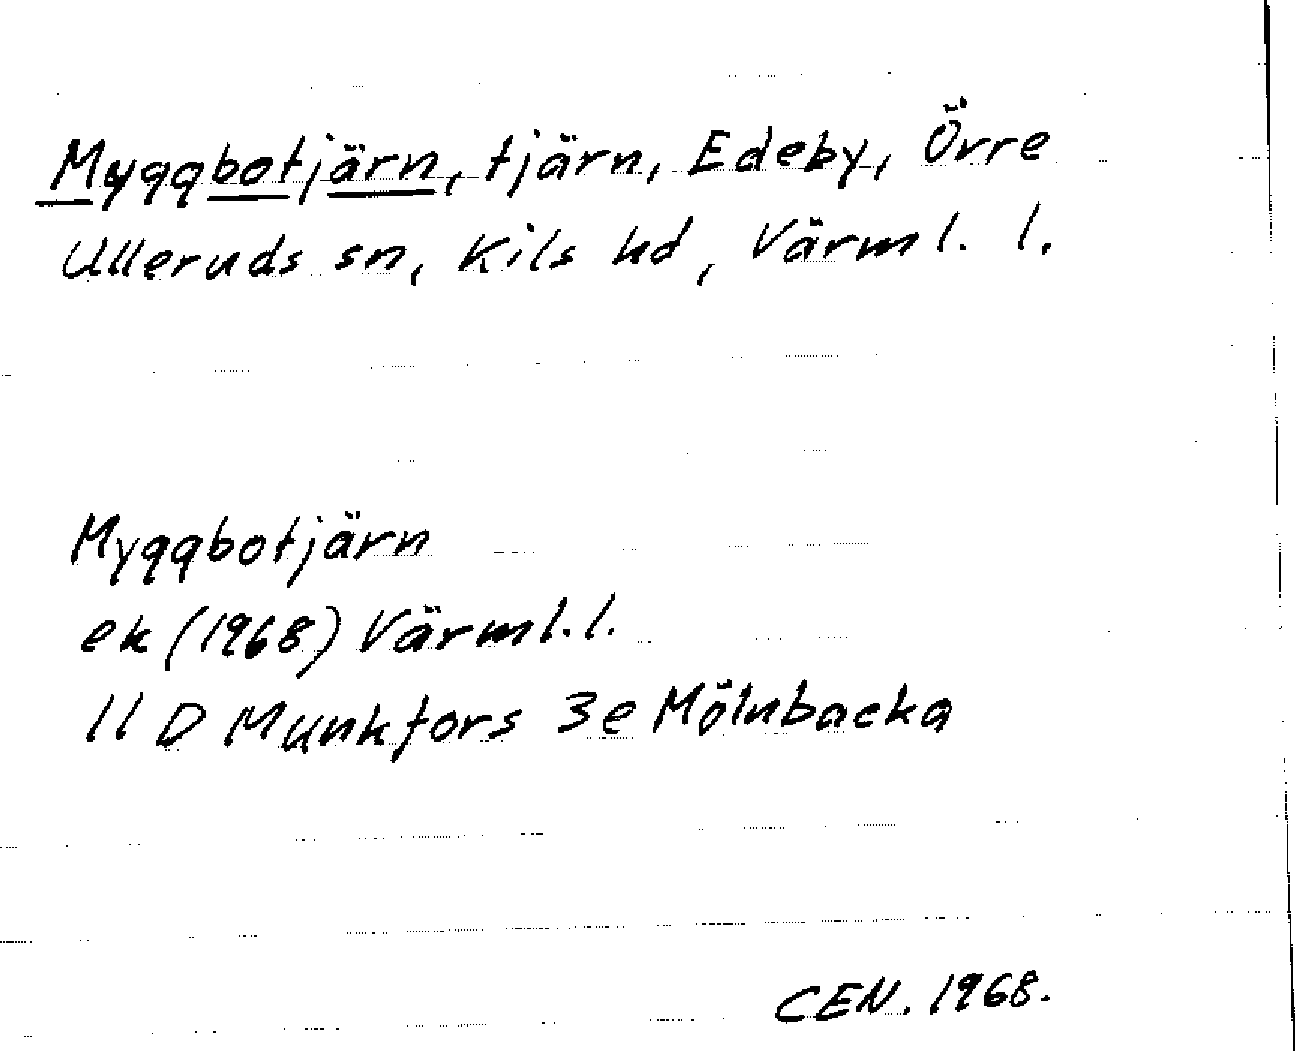 Myggbotjärn, tjärn, Edeby, Övre
Ulleruds sn, Kils hd, Värml. l.
Myggbotjärn
ek (1968) Värml. l.
11 D Munkfors 3e Mölnbacka
CEN. 1968.